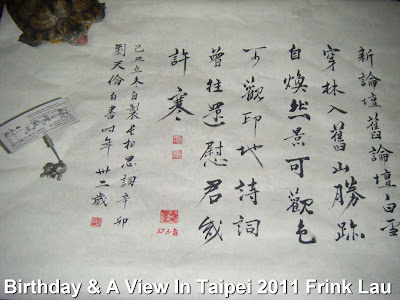 新論壇舊論壇白雲
穿林入舊山勝跡
自煥然景可觀色
可觀印地詩詞
曾往還慰君歲
許寒
己丑立冬自製長相思詞辛卯
劉天倫自書时年卅二歲
Birthday & A View In Taipei 2011 Frink Lau